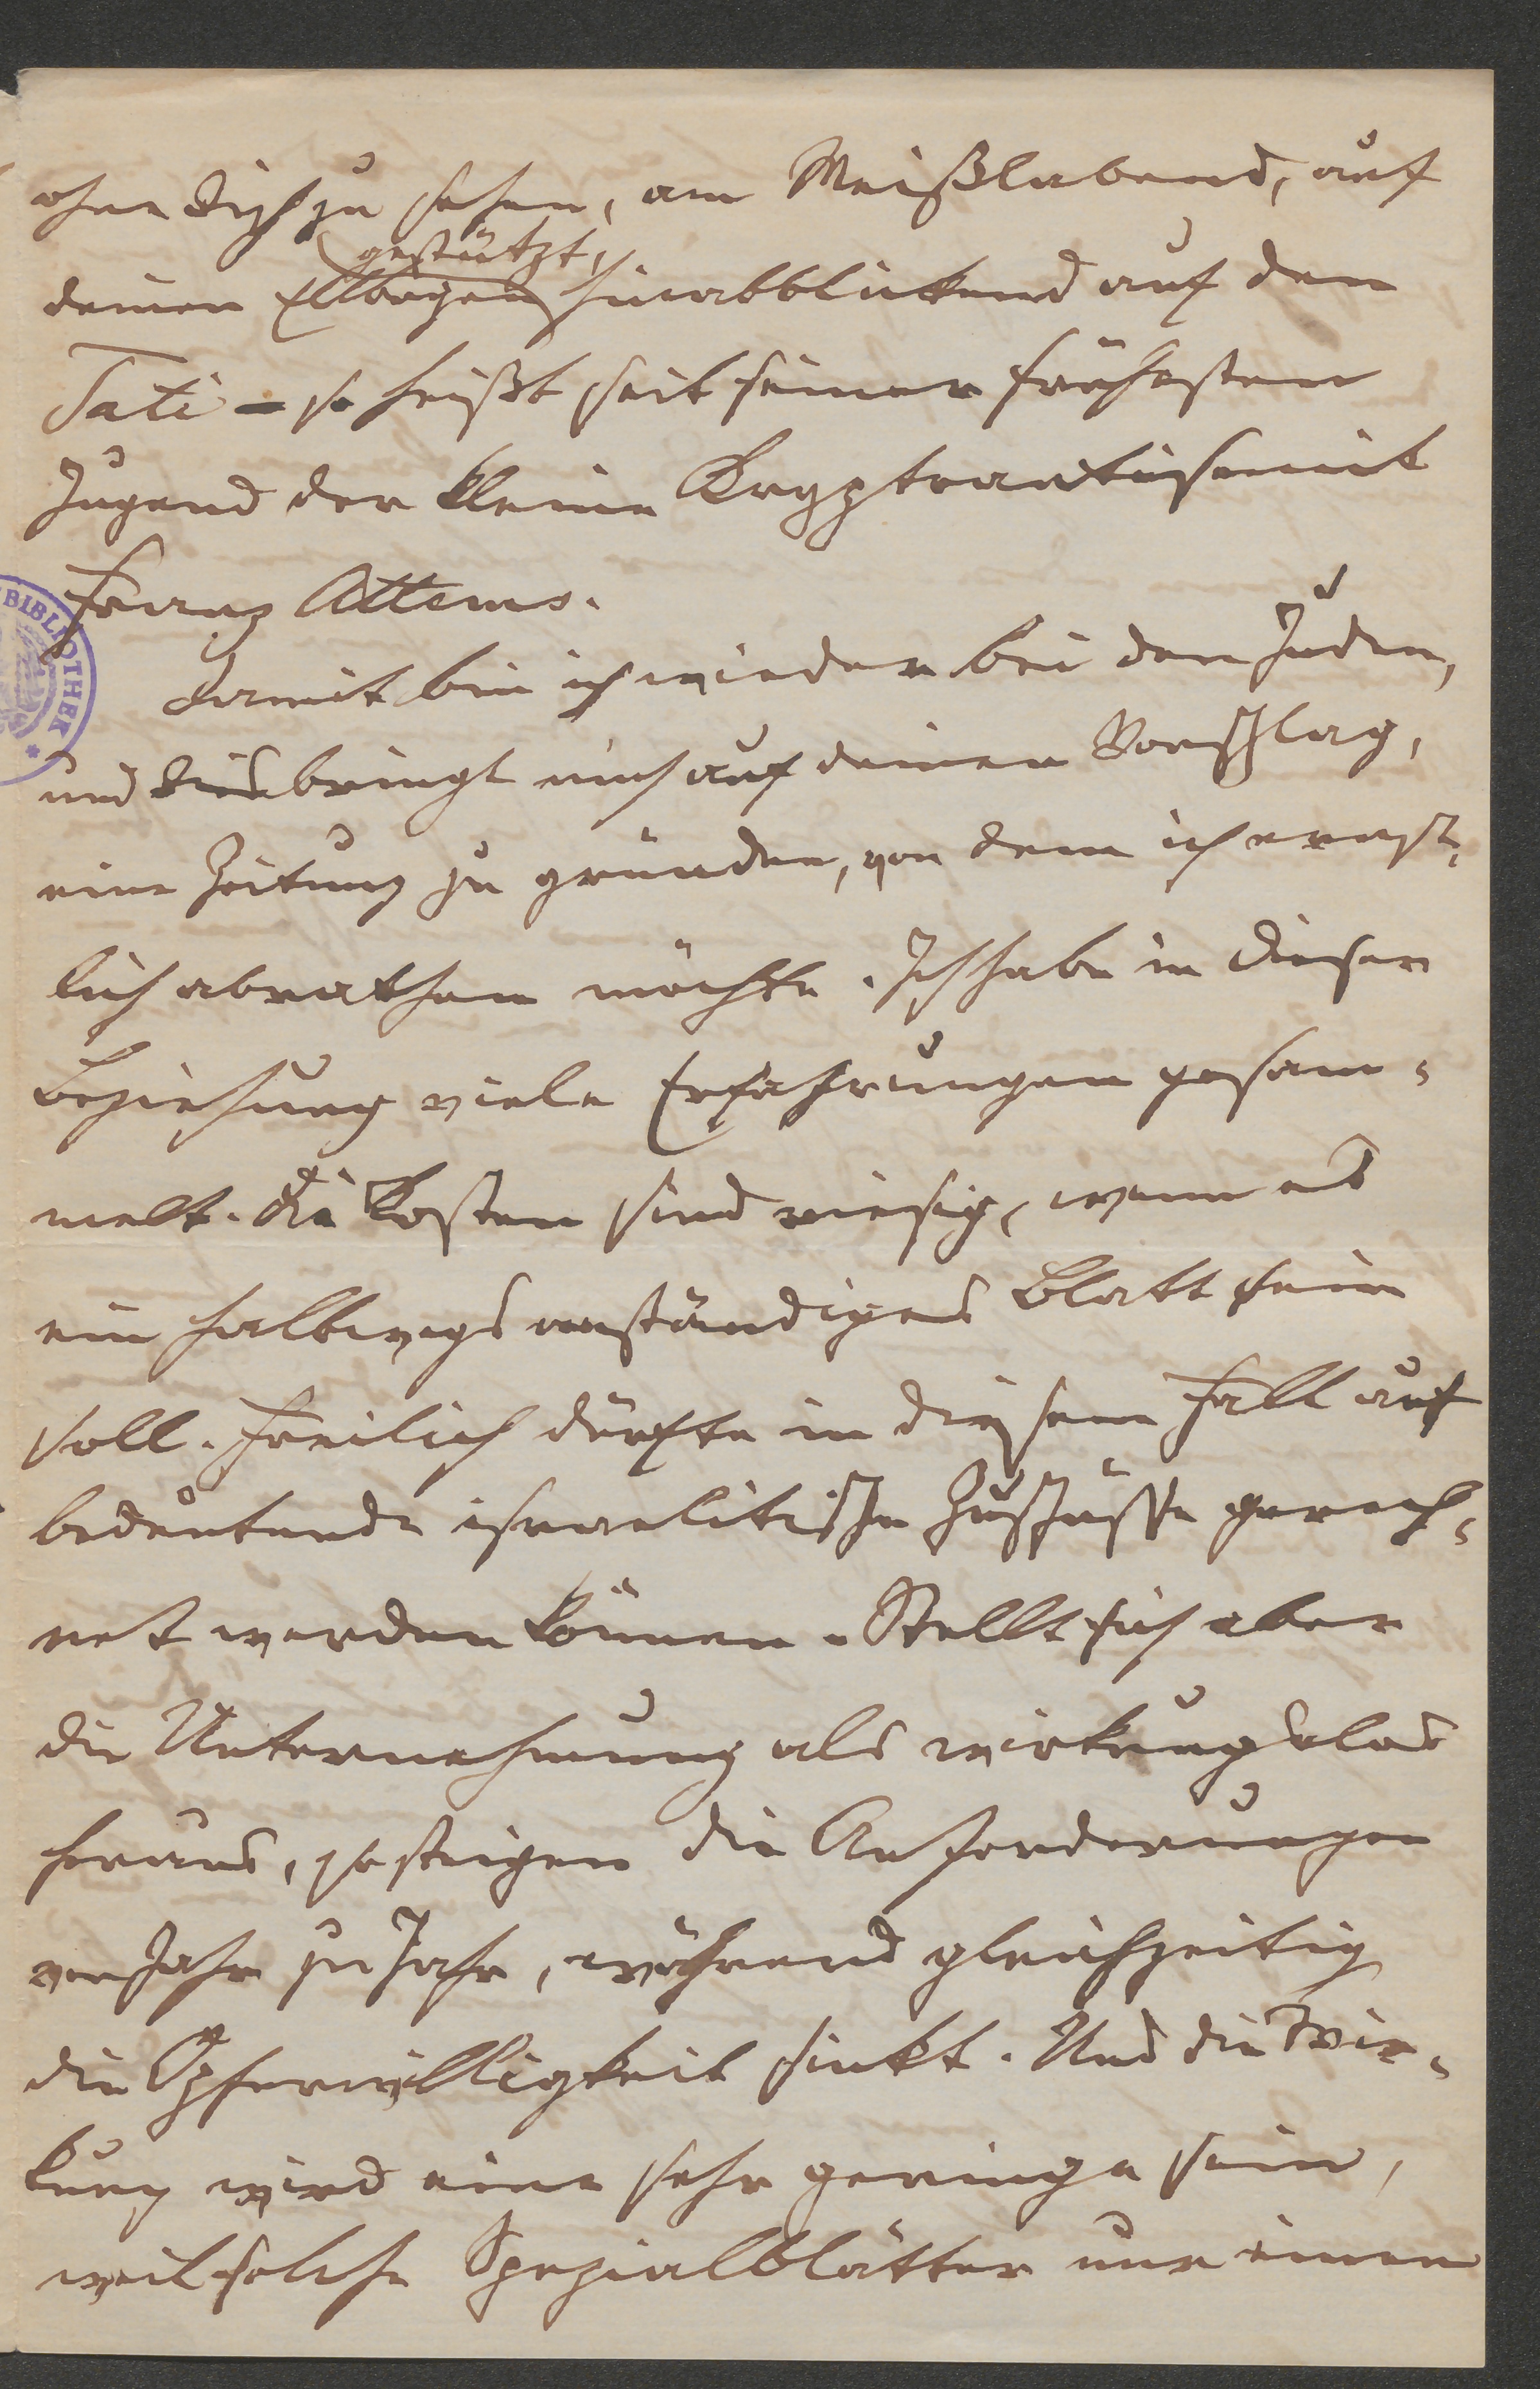 ohne dich zu sehen, am Meißlabend, auf
gestützt,
deinen Ellbogen hinabblickend auf den
Tati – so heißt seit seiner frühesten
Jugend der kleine Kryptoantisemit
Franz Attems.
Damit bin ich wieder bei den Juden,
und dies bringt mich auf deinen Vorschlag,
eine Zeitung zu gründen, von dem ich ernst-
lich abrathen möchte. Ich habe in dieser
Beziehung viele Erfahrungen gesam-
melt. Die Kosten sind riesig, wenn es
ein halbwegs anständiges Blatt sein
soll. Freilich dürfte in diesem Fall auf
bedeutende israelitische Zuschüsse gerech-
net werden können. Stellt sich aber
die Unternehmung als wirkungslos
heraus, so steigen die Anforderungen
von Jahr zu Jahr, während gleichzeitig
die Opferwilligkeit sinkt. Und die Wir-
kung wird eine sehr geringe sein,
weil solche Spezialblätter nur einen
BIBLIOTHEK